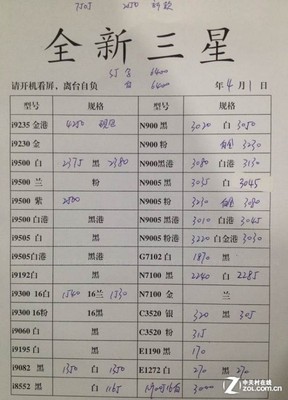 7505 2050
全新三星
S5 白 6400
请开机看屏，离台自负 白 6400 年4月1日
型号 规格 型号 规格
i9235 金港 4250 N900 黑 3020 白 3050
i9230 金 N900 粉 3230
i9500 白 2375 黑 2380 N900黑港 3080 白港 3130
i9500 兰 粉 N9005 黑 3035 白 3045
i9500 紫 2500 N9005 粉 3210
i9500 白港 黑港 N9005 黑港 3010 白港 3045
i9505 白 黑 N9005 粉港 3220 白金港 3030
i9505白港 黑港 G7102 白 1870 黑
i9192白 黑 N7100 黑 2240 白 2285
i9300 16白 1540 16兰 1330 N7100 金 兰
i9300 16粉 16黑 C3520 银 320 黑 305
i9060 白 黑 C3520 粉 315
i9195 白 黑 E1190 黑 170
i9082 黑 1350 白 1350 E1272 白 270 黑 270
i8552 黑 白 1165 3000
中关村在线
zol.com.cn